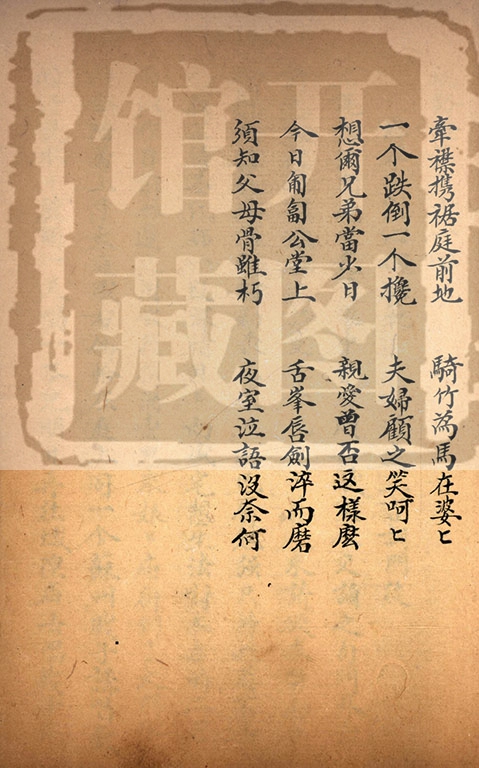 牽襟携裾庭前地　騎竹為馬在婆匕
一个跌倒一个攙　夫婦顧之笑呵匕
想爾兄弟當少日　親愛曾否这樣麽
今日匍匐公堂上　舌峯唇劍淬而磨
須知父母骨雖朽　夜室泣語沒奈何
开图
馆藏